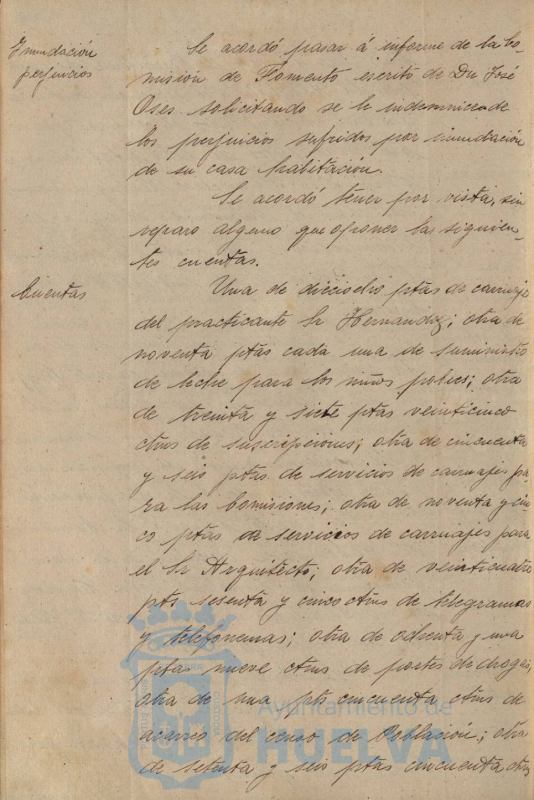 Inundación
perjuicios
Se acordó pasar á informe de la Co-
misión de Fomento escrito de Dn José
Oses solicitando se le indemnice de
los perjuicios sufridos por inundación
de su casa habitación.
Se acordó tener por vista, sin
reparo alguno que oponer las siguien-
tes cuentas.
Cuentas
Una de dieciocho ptas de carruaje
del practicante Sr Hernandez; otra de
noventa ptas cada una de suministro
de leche para los niños pobres; otra
de treinta y siete ptas veinticinco
ctmos de suscripciones; otra de cincuenta
y seis ptas de servicios de carruajes pa-
ra las Comisiones; otra de noventa y cin-
co ptas de servicios de carruajes para
el Sr Arquitecto; otra de veinticuatro
pts sesenta y cinco ctms de telegramas
y telefonemas; otra de ochenta y una
ptas nueve ctms de portes de drogas,
otra de una pts cincuenta ctms de
acarreo del censo de Población; otra
de setenta y seis ptas cincuenta ctms
Ayuntamiento de
HUELVA